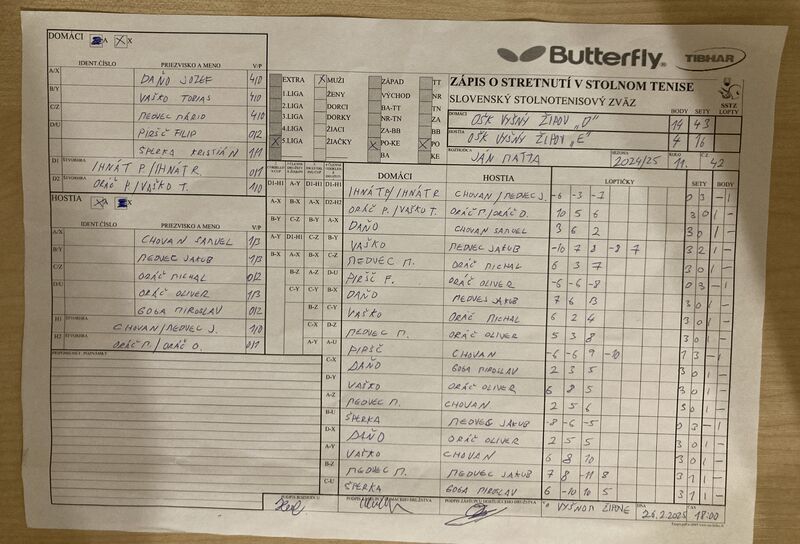 DOMÁCI A X
IDENT.ČÍSLO PRIEZVISKO A MENO V/P
A/X DAŇO JOZEF 4/0
B/Y VAŠKO TOBIAS 4/0
C/Z MEDVEC MÁRIO 4/0
D/U PIRŠČ FILIP 0/2
ŠPERKA KRISTIÁN 1/1
D1 ŠTVORHRA IHNÁT P./IHNÁT R. 0/1
D2 ŠTVORHRA ORÁČ P./VAŠKO T. 1/0
HOSTIA A X
IDENT.ČÍSLO PRIEZVISKO A MENO V/P
A/X CHOVAN SAMUEL 1/3
B/Y MEDVEC JAKUB 1/3
C/Z ORÁČ MICHAL 0/2
D/U ORÁČ OLIVER 1/3
GOGA MIROSLAV 0/2
H1 ŠTVORHRA CHOVAN/MEDVEC J. 1/0
H2 ŠTVORHRA ORÁČ M/ORÁČ O. 0/1
EXTRA MUŽI ZÁPAD TT
1.LIGA ŽENY VÝCHOD NR
2.LIGA DORCI BA-TT TN
3.LIGA DORKY NR-TN ZA
4.LIGA ŽIACI ZA-BB BB
5.LIGA ŽIAČKY PO-KE PO
BA KE
Butterfly
TIBHAR
ZÁPIS O STRETNUTÍ V STOLNOM TENISE
SLOVENSKÝ STOLNOTENISOVÝ ZVÄZ
BODY SETY SSTZ LOPTY
DOMÁCI OŠK VYŠNÝ ŽIPOV "D" 14 43
HOSTIA OŠK VYŠNÝ ŽIPOV "E" 4 16
ROZHODCA JÁN MATTA SEZONA 2024/25 KOLO 11. Č.Z. 42
DOMÁCI HOSTIA LOPTIČKY SETY BODY
D1-H1 A-Y D1-H1 D1-H1 IHNÁT P/IHNÁT R CHOVAN/MEDVEC J. -6 -3 -7 0 3 - 1
A-X B-X A-X D2-H2 ORÁČ P./VAŠKO T. ORÁČ M/ORÁČ O. 10 5 6 3 0 1 -
B-Y C-Z B-Y A-X DAŇO CHOVAN SAMUEL 3 6 2 3 0 1
A-Y D1-H1 C-Z B-Y VAŠKO MEDVEC JAKUB -10 7 8 -8 7 3 2 1 -
B-X A-X A-X C-Z MEDVEC M. ORÁČ MICHAL 6 3 7 3 0 1 -
B-Z A-Z D-U PIRŠČ F. ORÁČ OLIVER -6 -6 -8 0 3 - 1
C-Y C-Y B-X DAŇO MEDVES JAKUB 7 6 13 3 0 1
B-Z C-Y VAŠKO ORÁČ MICHAL 6 2 4 3 0 1
C-X D-Z MEDVEC M ORÁČ OLIVER 5 3 8 3 0 1
A-Y A-U PIRŠČ CHOVAN -6 -6 9 -10 1 3 - 1
C-X DAŇO GOGA MIROSLAV 2 3 5 3 0 1
D-Y VAŠKO ORÁČ OLIVER 6 8 5 3 0 1
A-Z MEDVEC M. CHOVAN 2 5 6 3 0 1 -
B-U ŠPERKA MEDVEC JAKUB -8 -6 -5 0 3 - 1
D-X DAŇO ORÁČ OLIVER 2 5 5 3 0 1
A-Y VAŠKO CHOVAN 6 8 10 3 0 1
B-Z MEDVEC M. MEDVEC JAKUB 7 8 -11 8 3 1 1
C-U ŠPERKA GOGA MIROSLAV 6 -10 10 5 3 1 1
PODPIS ROZHODCU PODPIS ZÁSTUPCU DOMÁCEHO DRUŽSTVA PODPIS ZÁSTUPCU HOSŤUJÚCEHO DRUŽSTVA V O VYŠNOM ŽIPOVE DŇA 26.2.2025 ČAS 18:00